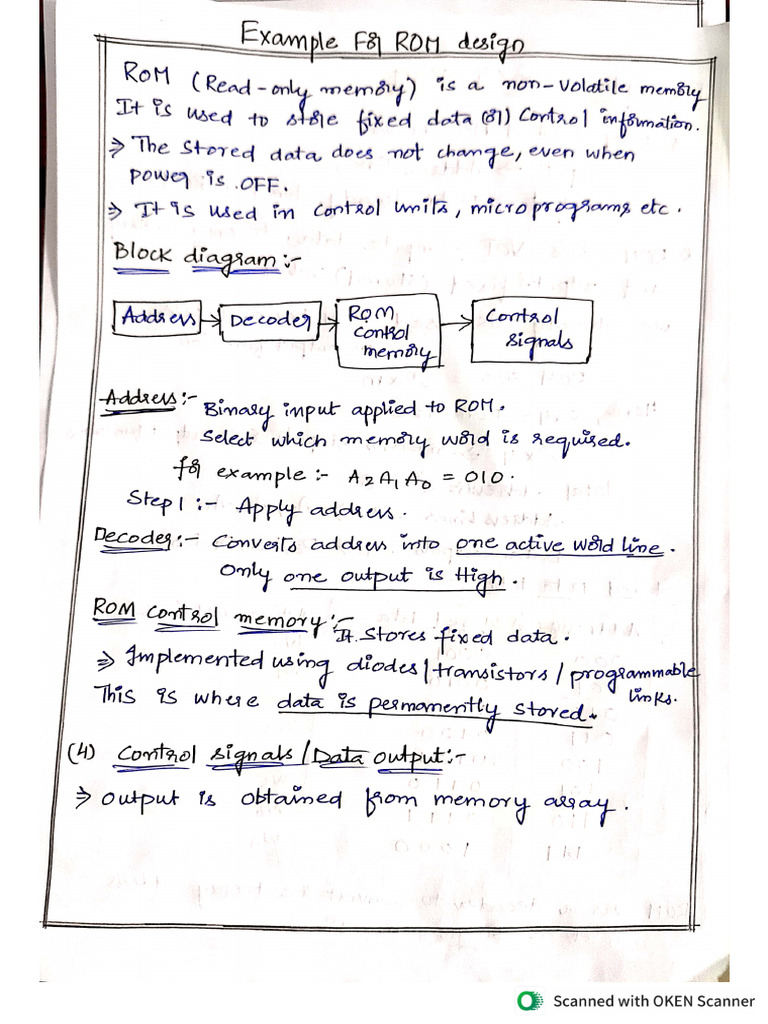 Example For ROM design
ROM (Read-only memory) is a non-volatile memory
It is used to store fixed data (or) Control information.
⇒ The stored data does not change, even when
power is OFF.
⇒ It is used in control units, microprograms etc.
Block diagram:-
Address → Decoder → ROM control memory → Control signals
Address:- Binary input applied to ROM.
Select which memory word is required.
for example:- A2A1A0 = 010.
Step1:- Apply address.
Decoder:- Converts address into one active word line.
Only one output is High.
ROM control memory:- It stores fixed data.
⇒ Implemented using diodes/transistors/programmable
links.
This is where data is permanently stored.
(4) Control signals/Data output:-
⇒ output is obtained from memory array.
Scanned with OKEN Scanner